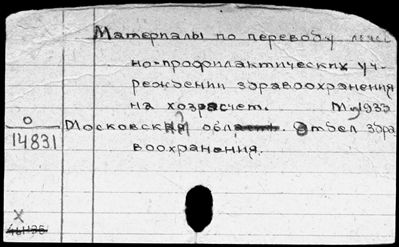 Материалы по переводу лечеб
но-профилактических уч-
реждении здравоохранения
на хозрасчет. М., 1933
О
14831
Московская область. Отдел здра
воохранения.
X